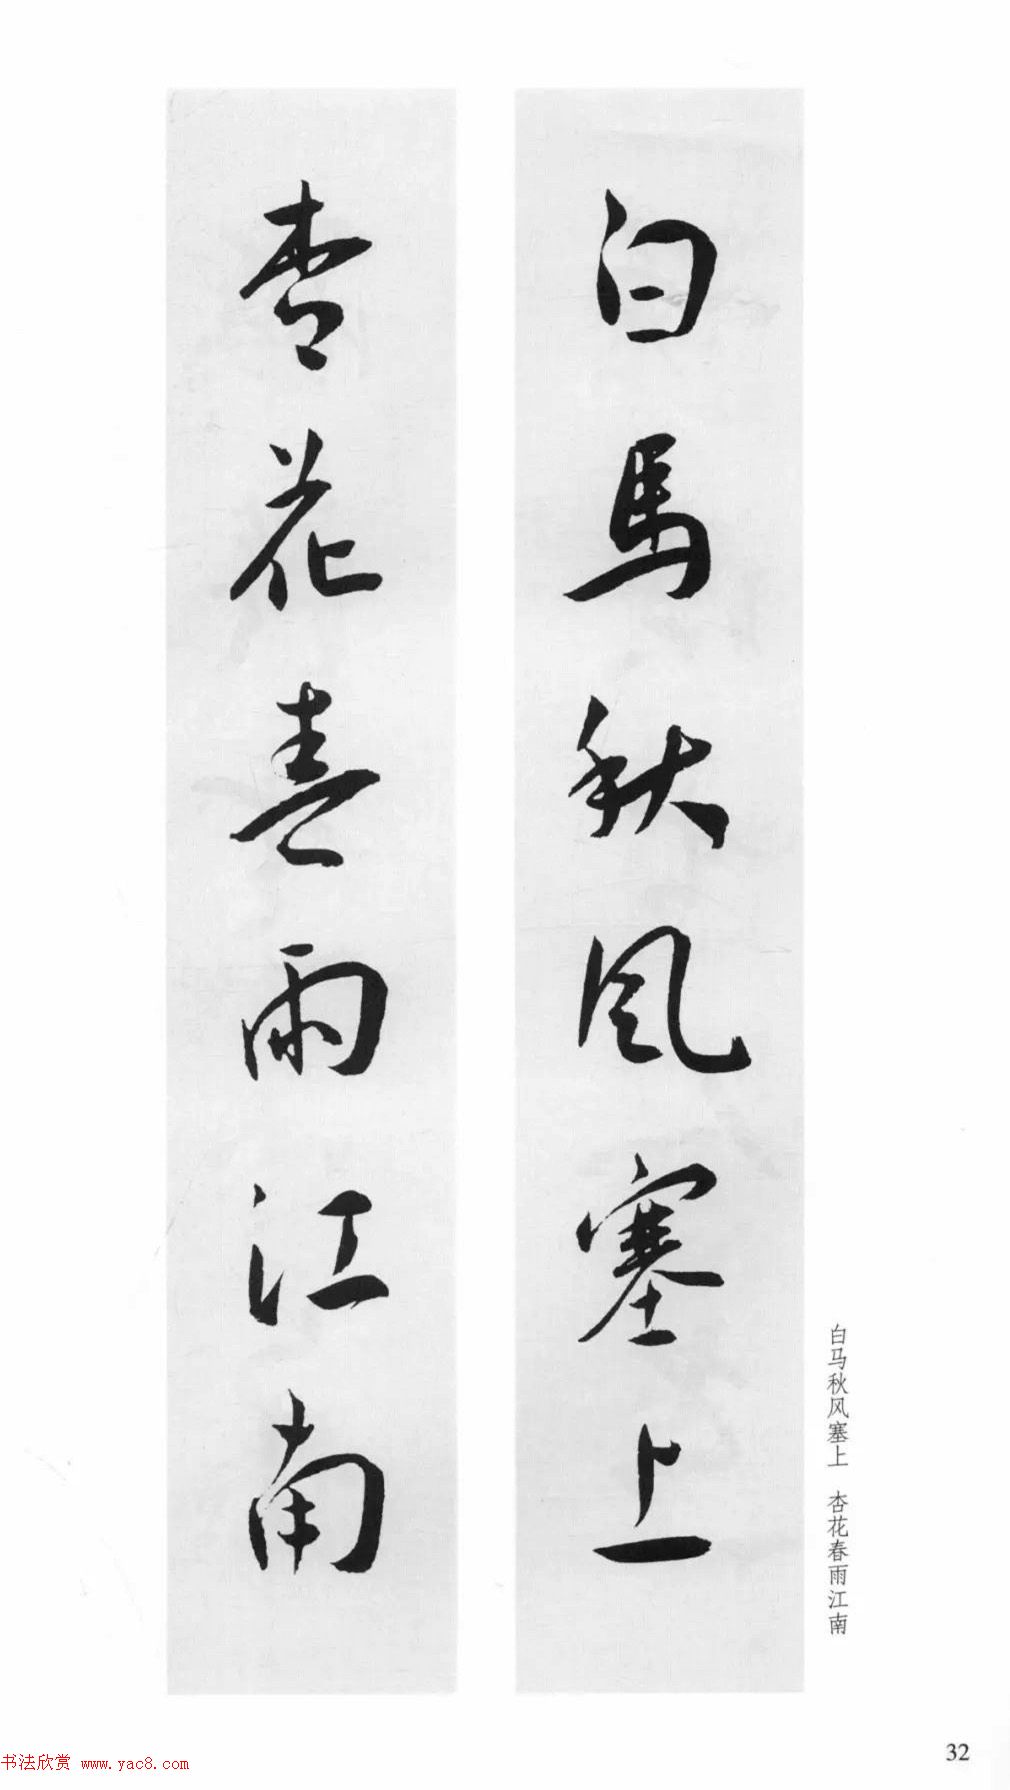 白馬秋风塞上
杏花春雨江南
白马秋风塞上 杏花春雨江南
32
书法欣赏 www.yac8.com